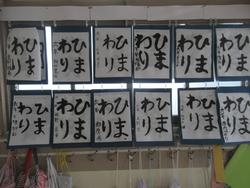 ひま
わり
ひま
わり
ひま
わり
ひま
わり
ひま
わり
ひま
わり
ひま
わり
ひま
わり
ひま
わり
ひま
わり
ひま
わり
ひま
わり